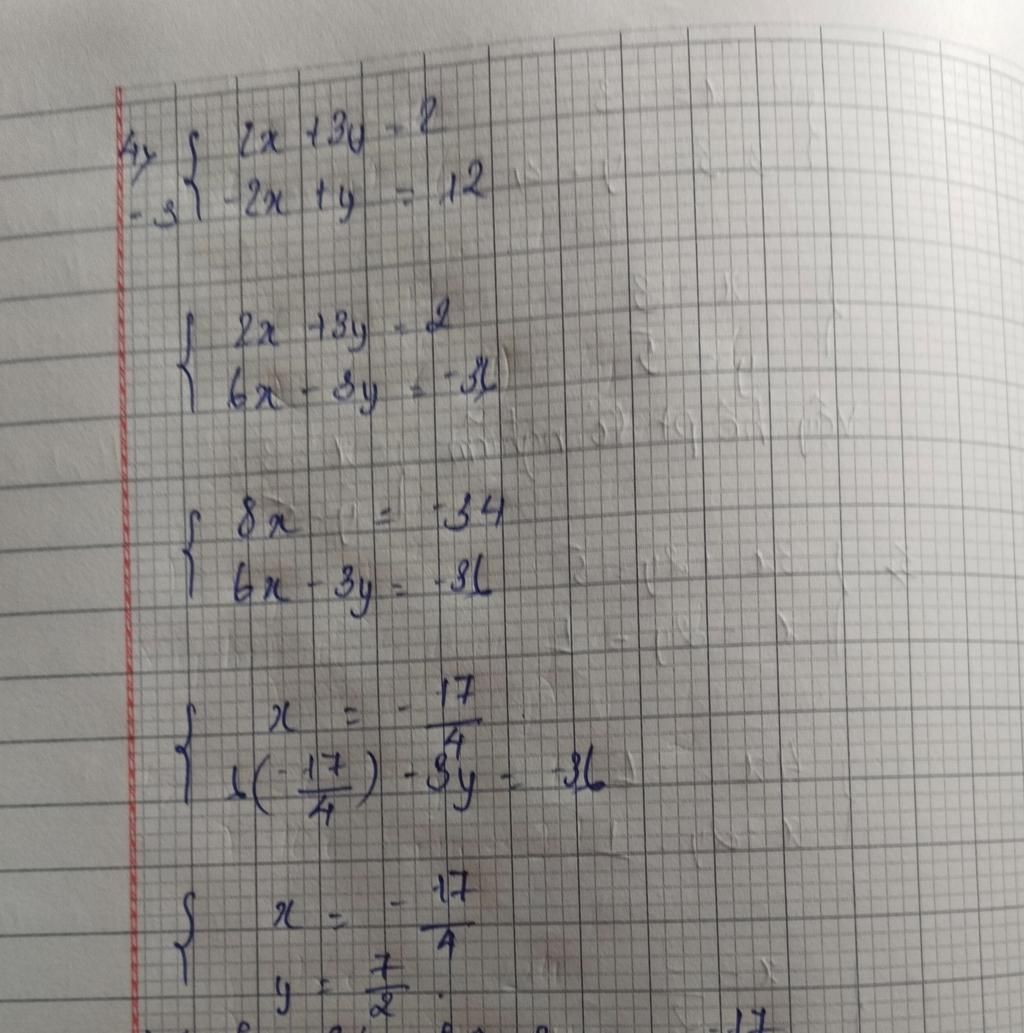 2x + 3y = 2
-3 { -2x + y = 12
{ 2x + 3y = 2
6x - 3y = -36
{ 8x = -34
6x - 3y = -36
{ x = - 17/4
6(- 17/4) - 3y = -36
{ x = - 17/4
y = 7/2 .